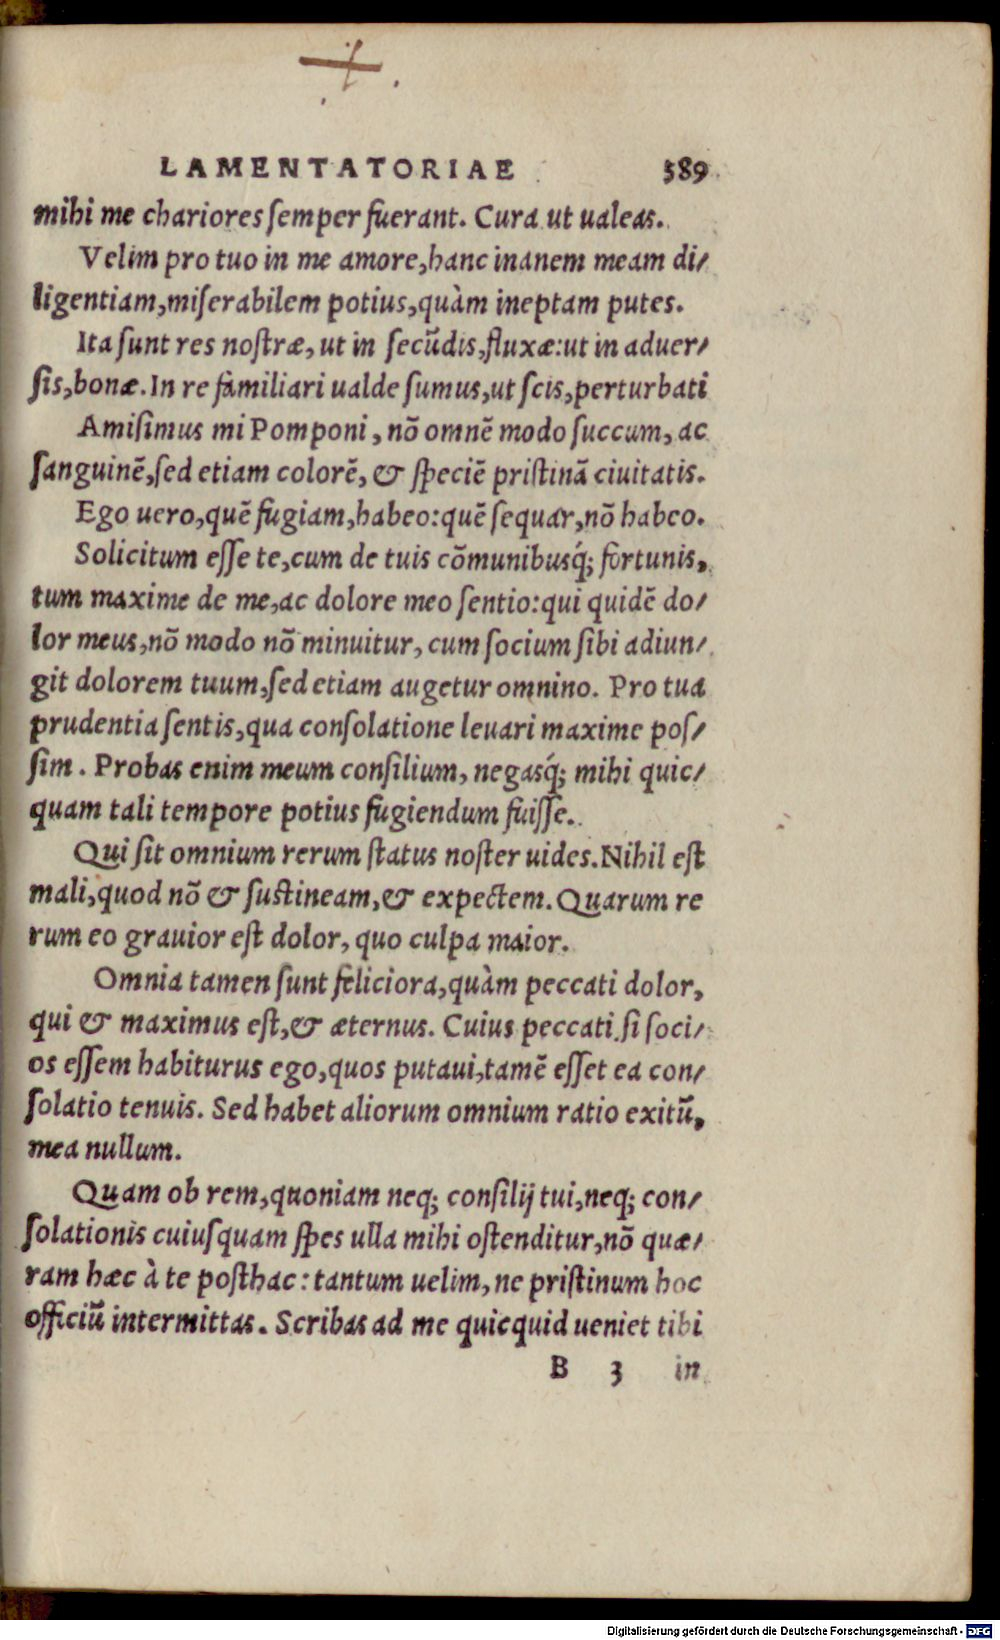 LAMENTATORIAE 389
mihi me chariores ſemper fuerant. Cura ut ualeas.
Velim pro tuo in me amore, hanc inanem meam di/
ligentiam, miſerabilem potius, quàm ineptam putes.
Ita ſunt res noſtræ, ut in ſecũdis, fluxæ: ut in aduer/
ſis, bonæ. In re familiari ualde ſumus, ut ſcis, perturbati
Amiſimus mi Pomponi, nõ omnẽ modo ſuccum, ac
ſanguinẽ, ſed etiam colorẽ, & ſpeciẽ priſtinã ciuitatis.
Ego uero, quẽ fugiam, habeo: quẽ ſequar, nõ habeo.
Solicitum eſſe te, cum de tuis cõmunibusq́; fortunis,
tum maxime de me, ac dolore meo ſentio: qui quidẽ do/
lor meus, nõ modo nõ minuitur, cum ſocium ſibi adiun/
git dolorem tuum, ſed etiam augetur omnino. Pro tua
prudentia ſentis, qua conſolatione leuari maxime poſ/
ſim. Probas enim meum conſilium, negasq́; mihi quic/
quam tali tempore potius fugiendum fuiſſe.
Qui ſit omnium rerum ſtatus noſter uides. Nihil eſt
mali, quod nõ & ſuſtineam, & expectem. Quarum re
rum eo grauior eſt dolor, quo culpa maior.
Omnia tamen ſunt feliciora, quàm peccati dolor,
qui & maximus eſt, & æternus. Cuius peccati ſi ſoci/
os eſſem habiturus ego, quos putaui, tamẽ eſſet ea con/
ſolatio tenuis. Sed habet aliorum omnium ratio exitũ,
mea nullum.
Quam ob rem, quoniam neq; conſilij tui, neq; con/
ſolationis cuiuſquam ſpes ulla mihi oſtenditur, nõ quæ/
ram hæc à te poſthac: tantum uelim, ne priſtinum hoc
officiũ intermittas. Scribas ad me quicquid ueniet tibi
B 3 in
Digitalisierung gefördert durch die Deutsche Forschungsgemeinschaft - DFG